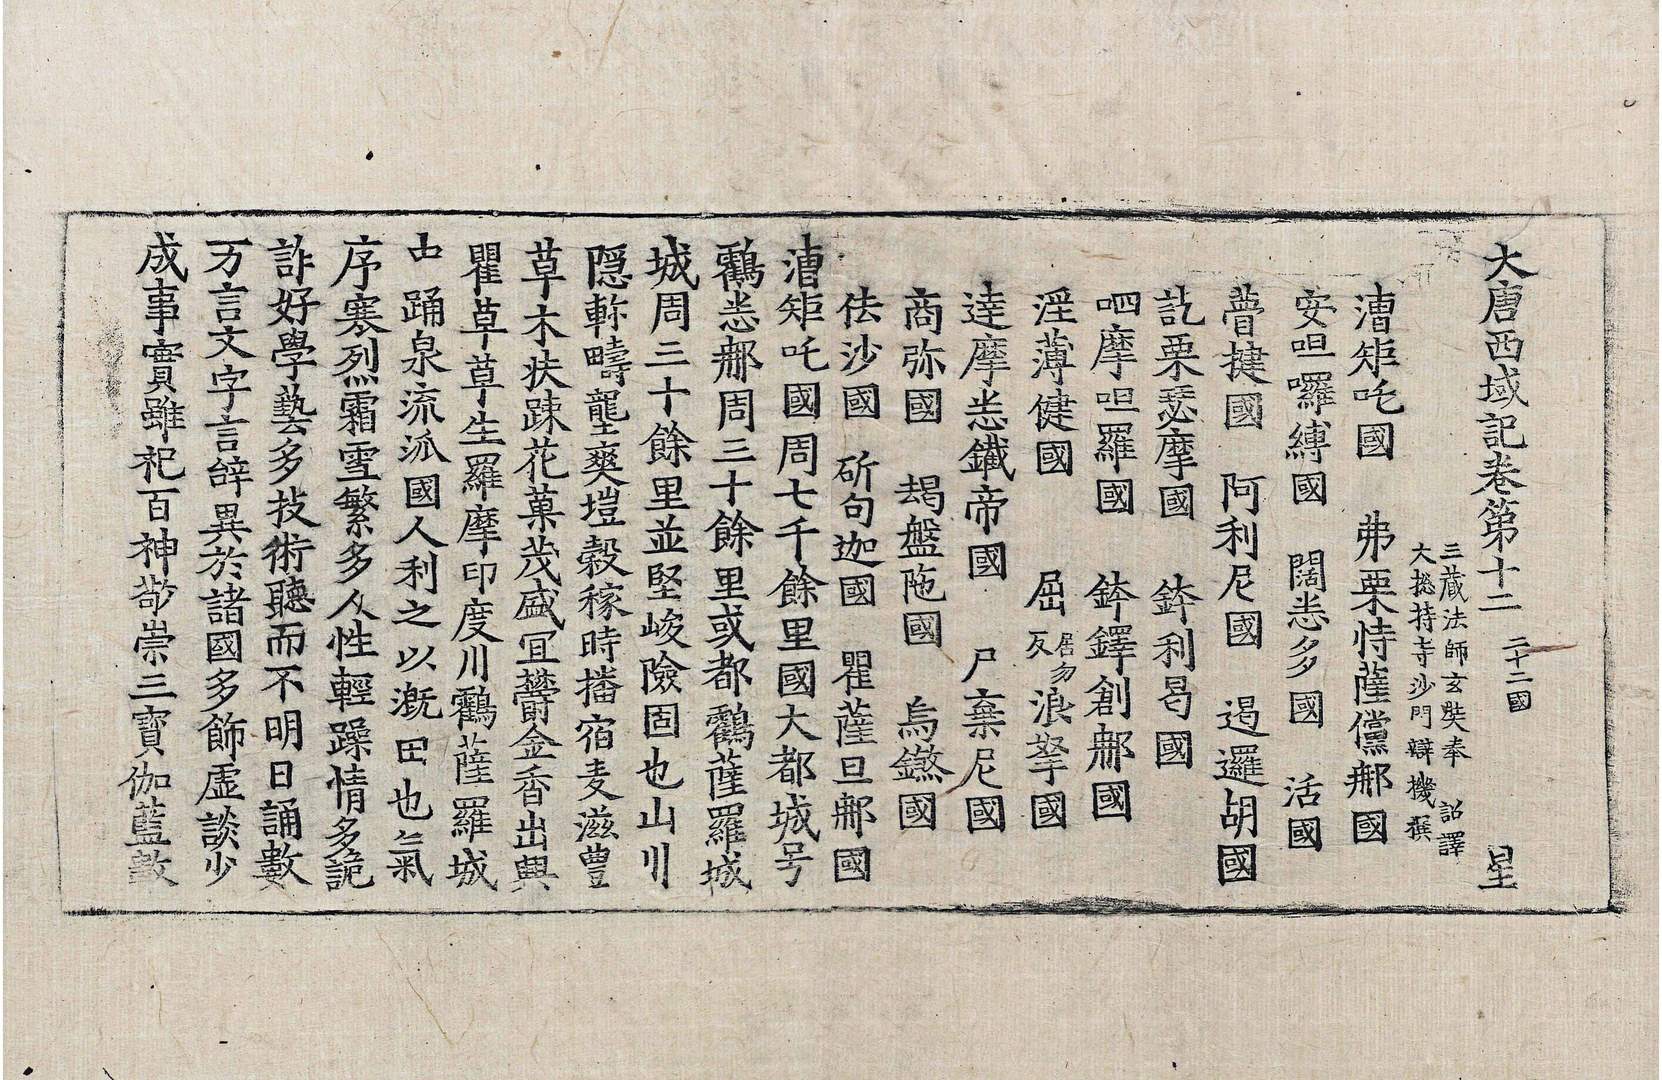 大唐西域記卷第十二 二十二國 星
三藏法師玄奘奉 詔譯
大捴持寺沙門辯機撰
漕矩吒國 弗栗恃薩儻那國
安呾囉縛國 闊悉多國 活國
瞢揵國 阿利尼國 遏邏胡國
訖栗瑟摩國 鉢利曷國
呬摩呾羅國 鉢鐸創那國
淫薄健國 屈居勿反浪拏國
達摩悉鐵帝國 尸棄尼國
商弥國 朅盤陁國 烏鎩國
佉沙國 斫句迦國 瞿薩旦那國
漕矩吒國周七千餘里國大都城号
鶴悉那周三十餘里或都鶴薩羅城
城周三十餘里並堅峻險固也山川
隱軫疇壟爽塏穀稼時播宿麦滋豊
草木扶踈花菓茂盛宜鬱金香出興
瞿草草生羅摩印度川鶴薩羅城
中踊泉流派國人利之以溉田也氣
序寒烈霜雪繁多人性輕躁情多詭
詐好學藝多技術聽而不明日誦數
万言文字言辝異於諸國多飾虛談少
成事實雖祀百神敬崇三寶伽藍數